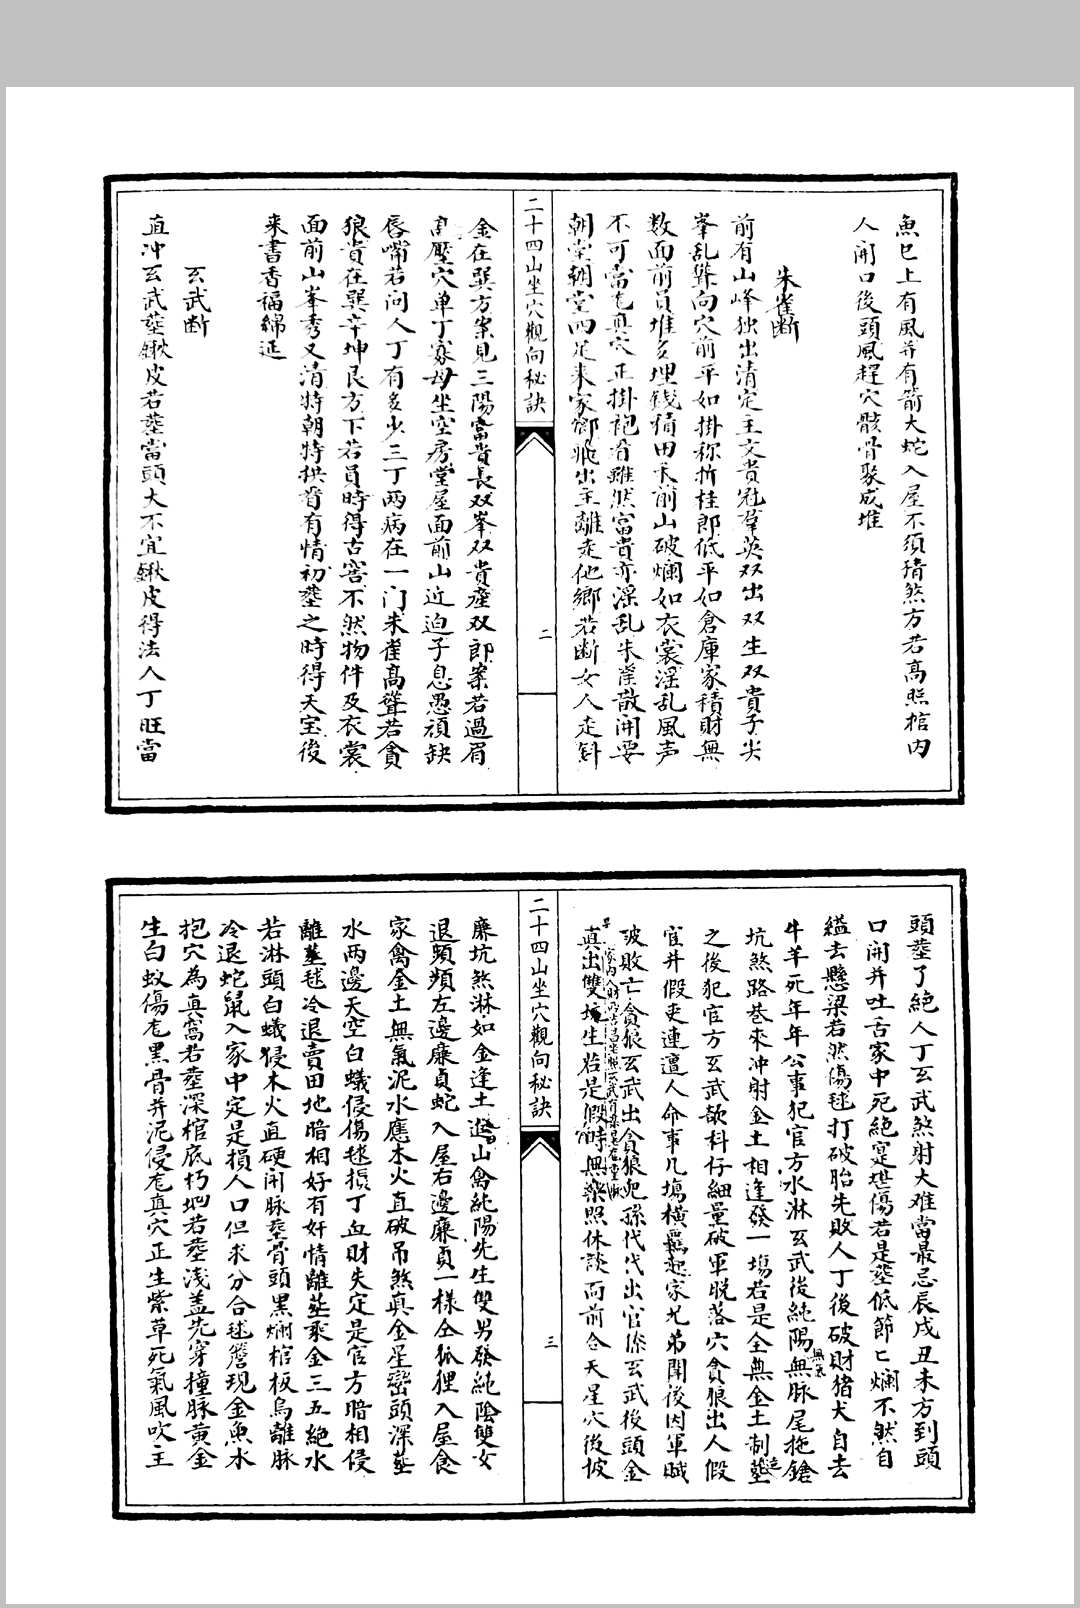 魚巳上有風并有箭大蛇入屋不須積煞方若高照棺內
人開口後頭風趕穴骸骨聚成堆
朱雀断
前有山峰独出清定主文貴冠羣英双出双生双貴子尖
峯乱聳向穴前平如掛称折桂郎低平如倉庫家積財無
数面前員堆多埋錢積田禾前山破爛如衣裳淫乱風声
不可當毛真穴正掛袍看雖然富貴亦淫乱朱雀散開要
朝堂朝堂四足来家鄉飛出主離走他鄉若断女人走斜
二十四山坐穴觀向秘訣
二
金在巽方案見三陽富貴長双峯双貴産双郎案若過眉
壓穴单丁寡母坐空房堂屋面前山近迫子息愚頑缺
唇嘴若问人丁有多少三丁两病在一门朱雀高聳若貪
狼貴在巽辛坤艮方下若員時得古窖不然物件及衣裳
面前山峯秀又清特朝特拱皆有情初塟之時得天宝後
来書香福綿延
玄武断
直冲玄武塟鍬皮若塟當頭大不宜鍬皮得法人丁旺當
頭塟了絕人丁玄武煞射大难當最忌辰戌丑未方到頭
口開并吐舌家中死絕寔堪傷若是塟低節匕爛不然自
縊去懸梁若然傷毬打破胎先敗人丁後破財猪犬自去
牛羊死年年公事犯官方水淋玄武後純陽無脉尾拖鎗
坑煞路巷來冲射金土相逢發一塲若是全無金土制塟
之後犯官方玄武欹斜仔細量破軍脱落穴貪狼出人假
官并假吏連遭人命事几塲橫羈起家兄弟鬧後因軍賊
破敗亡貪狼玄武出貪狼兒孫代代出官係玄武後頭金
真出雙坟生若是假時無樂照休談面前合天星穴後被
二十四山坐穴觀向秘訣
三
廉坑煞淋如金逢土進山禽純陽先生雙男發純陰雙女
退頻頻左邊廉貞蛇入屋右邊廉貞一樣仝狐狸入屋食
家禽金土無氣泥水應木火直破吊煞真金星巒頭深塟
水两邊天空白蟻侵傷毬損丁血財失定是官方暗相侵
離塟毬冷退賣田地暗相好有奸情離塟乘金三五絕水
若淋頭白蟻侵木火直硬開脉塟骨頭黑爛棺板烏離脉
冷退蛇鼠入家中定是損人口但求分合毬簷現金魚水
抱穴為真窩若塟深棺底朽爛若塟淺盖先穿撞脉黄金
生白蚁傷毛黑骨并泥侵毛真穴正生紫草死氣風吹主